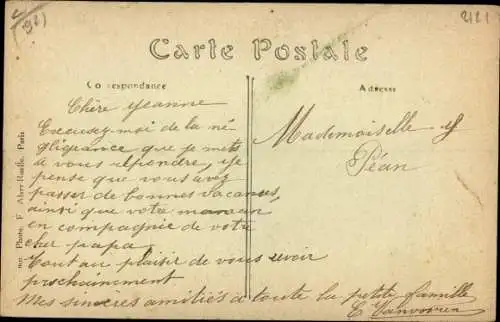 (92)
2121
Carte Postale
Correspondance
Adresse
Chère Jeanne
Excusez-moi de la né
gligeance que je mets
à vous répondre, je
pense que vous avez
passer de bonnes vacances,
ainsi que votre maman
en compagnie de votre
cher papa.
Tout au plaisir de vous revoir
prochainement
Mes sincères amitiés à toute la petite famille
C. Vanvooren
Mademoiselle J
Péan
Photo. F. Paris